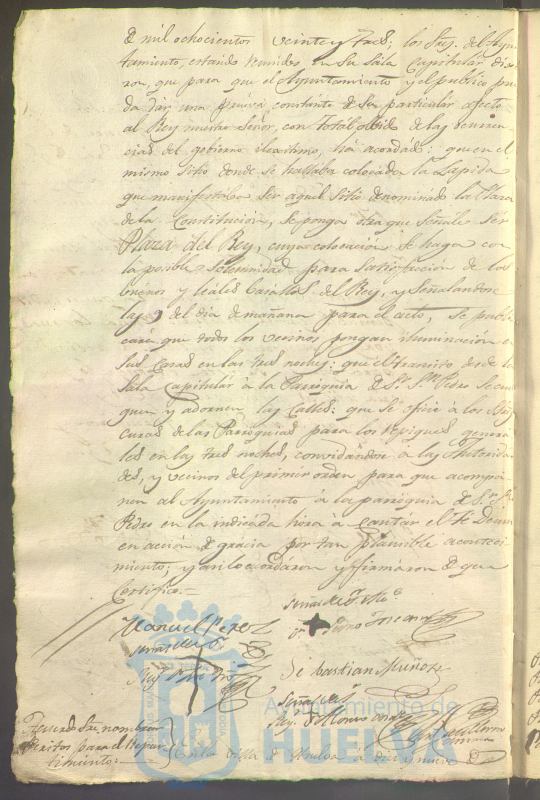 de mil ochocientos veinte y tres: los Sres. del Ayun
tamiento, estando reunidos en su Sala Capitular dixe
ron, que para que el Ayuntamiento y el publico pue
da dar una prueva constante de su particular afecto
al Rey nuestro Señor, con total olbido de las ocurren
cias del gobierno ilexitimo, ha acordado: que en el
mismo sitio donde se hallaba colocada la Lapida
que manifestaba ser aquel sitio denominado la Plaza
de la Constitucion, se ponga otra que señale ser
Plaza del Rey, cuya colocacion se haga con
la posible solemnidad para satisfaccion de los
buenos y leales basallos del Rey, y señalandose
las 9 del dia de mañana para el acto, se publi
cará que todos los vecinos pongan iluminacion en
sus casas en las tres noches: que el transito desde la
Sala Capitular à la Parroquia de Sr. Sn. Pedro se cuel
guen y adornen las Calles: que se oficie à los Srs.
curas de las Parroquias para los Repiques genera
les en las tres noches, convidandose a las Autorida
des, y vecinos del primer orden para que acompa
ñen al Ayuntamiento à la parroquia de Sr. Sn.
Pedro en la indicada hora à cantar el Te Deum
en accion de gracia por tan plausible acontesi
miento; y asi lo acordaron y firmaron de que
Certifico.=
Manuel Perez
Sebastian Muñoz
Señal de
Acuerdo Sre. nombrar
Peritos para el Repar
timiento.
En la villa de Huelva à diez y nueve de
Ayuntamiento de
HUELVA